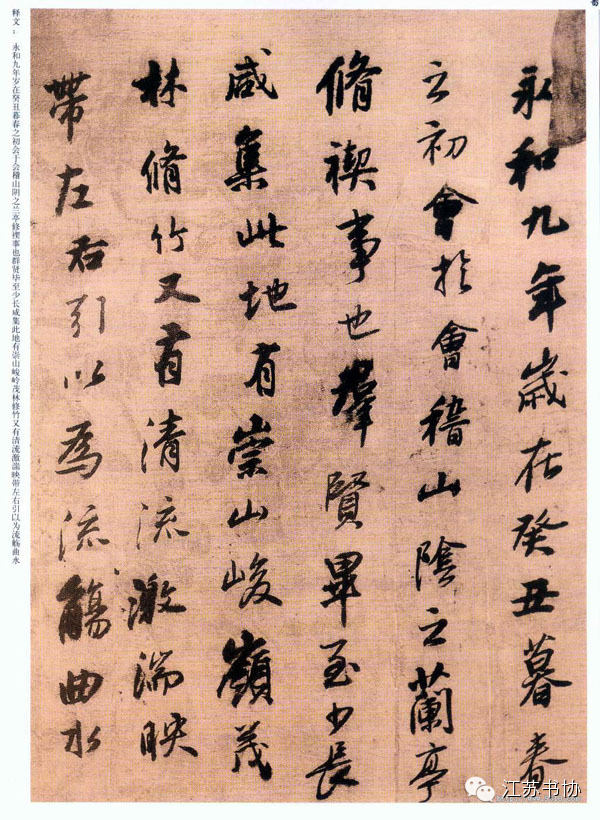 永和九年歲在癸丑暮春
之初會於會稽山陰之蘭亭
脩禊事也羣賢畢至少長
咸集此地有崇山峻嶺茂
林脩竹又有清流激湍映
帶左右引以為流觴曲水
释文：永和九年岁在癸丑暮春之初会于会稽山阴之兰亭修禊事也群贤毕至少长咸集此地有崇山峻岭茂林修竹又有清流激湍映带左右引以为流觞曲水
江苏书协